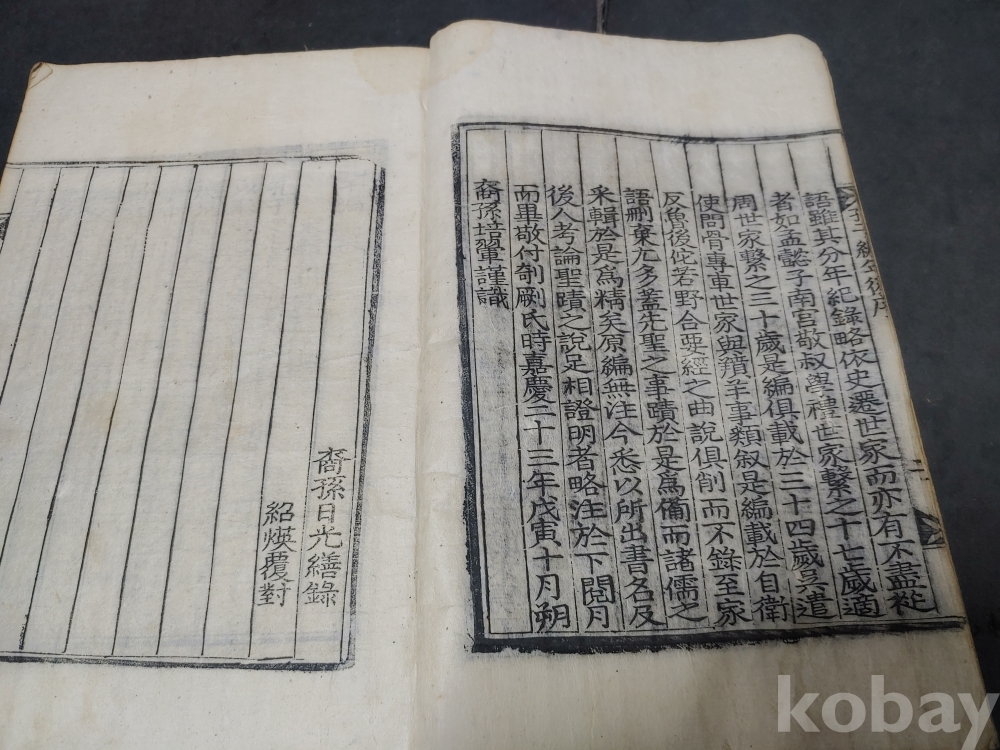 孔子編年後序
二
語雖其分年紀錄略依史遷世家而亦有不盡從
者如孟懿子南宮敬叔學禮世家繫之十七歲適
周世家繫之三十歲是編俱載於三十四歲吳遣
使問骨專車世家與羵羊事類叙是編載於自衛
反魯後佗若野合要絰之曲說俱削而不錄至家
語刪棄尤多蓋先聖之事蹟於是爲備而諸儒之
采輯於是爲精矣原編無注今悉以所出書名及
後人考論聖蹟之說足相證明者略注於下閱月
而畢敬付剞劂氏時嘉慶二十三年戊寅十月朔
裔孫培翬謹識
裔孫日光繕錄
紹煐覆對
kobay